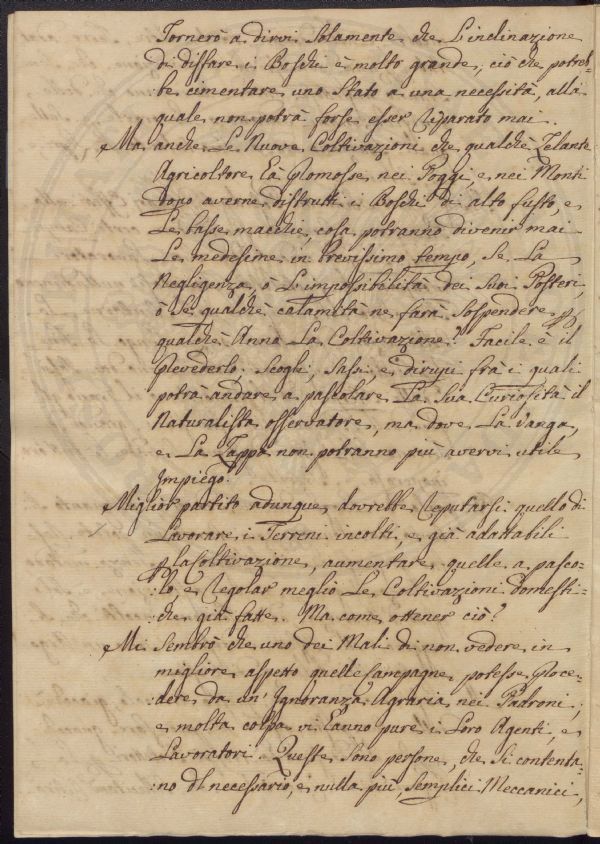 Tornerò a dirvi Solamente che L'inclinazione
di disfare i Boschi è molto grande, ciò che potreb-
be cimentare uno Stato a una necessità, alla
quale non potrà forse esser riparato mai.
Ma anche Le Nuove Coltivazioni che qualche Zelante
Agricoltore Ea Promosse nei Poggi, e nei Monti
dopo averne distrutti i Boschi di alto fusto, e
Le basse macchie, cosa potranno divenir mai
Le medesime in brevissimo tempo, Se La
Negligenza, ò L'impossibilità dei Suoi Posteri,
ò Se qualche calamità ne farà Sospendere p
qualche Anno La Coltivazione? Facile è il
Prevederlo. Scogli, Sassi, e dirupi frà i quali
potrà andare a pascolare La Sua Curiosità il
Naturalista osservatore, ma dove La Vanga,
e La Zappa non potranno più avervi utile
Impiego.
Miglior partito adunque dovrebbe reputarsi quello di
Lavorare i Terreni incolti, e già adattabili
p la Coltivazione, aumentare quelle a pasco-
:lo, e regolar meglio Le Coltivazioni domesti-
:che già fatte. Ma come ottener ciò?
Mi Sembrò che uno dei Mali di non vedere in
migliore aspetto quelle Campagne potesse Proce-
:dere da un'Ignoranza Agraria nei Padroni;
e molta colpa vi Eanno pure i Loro Agenti, e
Lavoratori. Queste Sono persone, che Si contenta-
:no dl necessario, e nulla più, Semplici Meccanici,